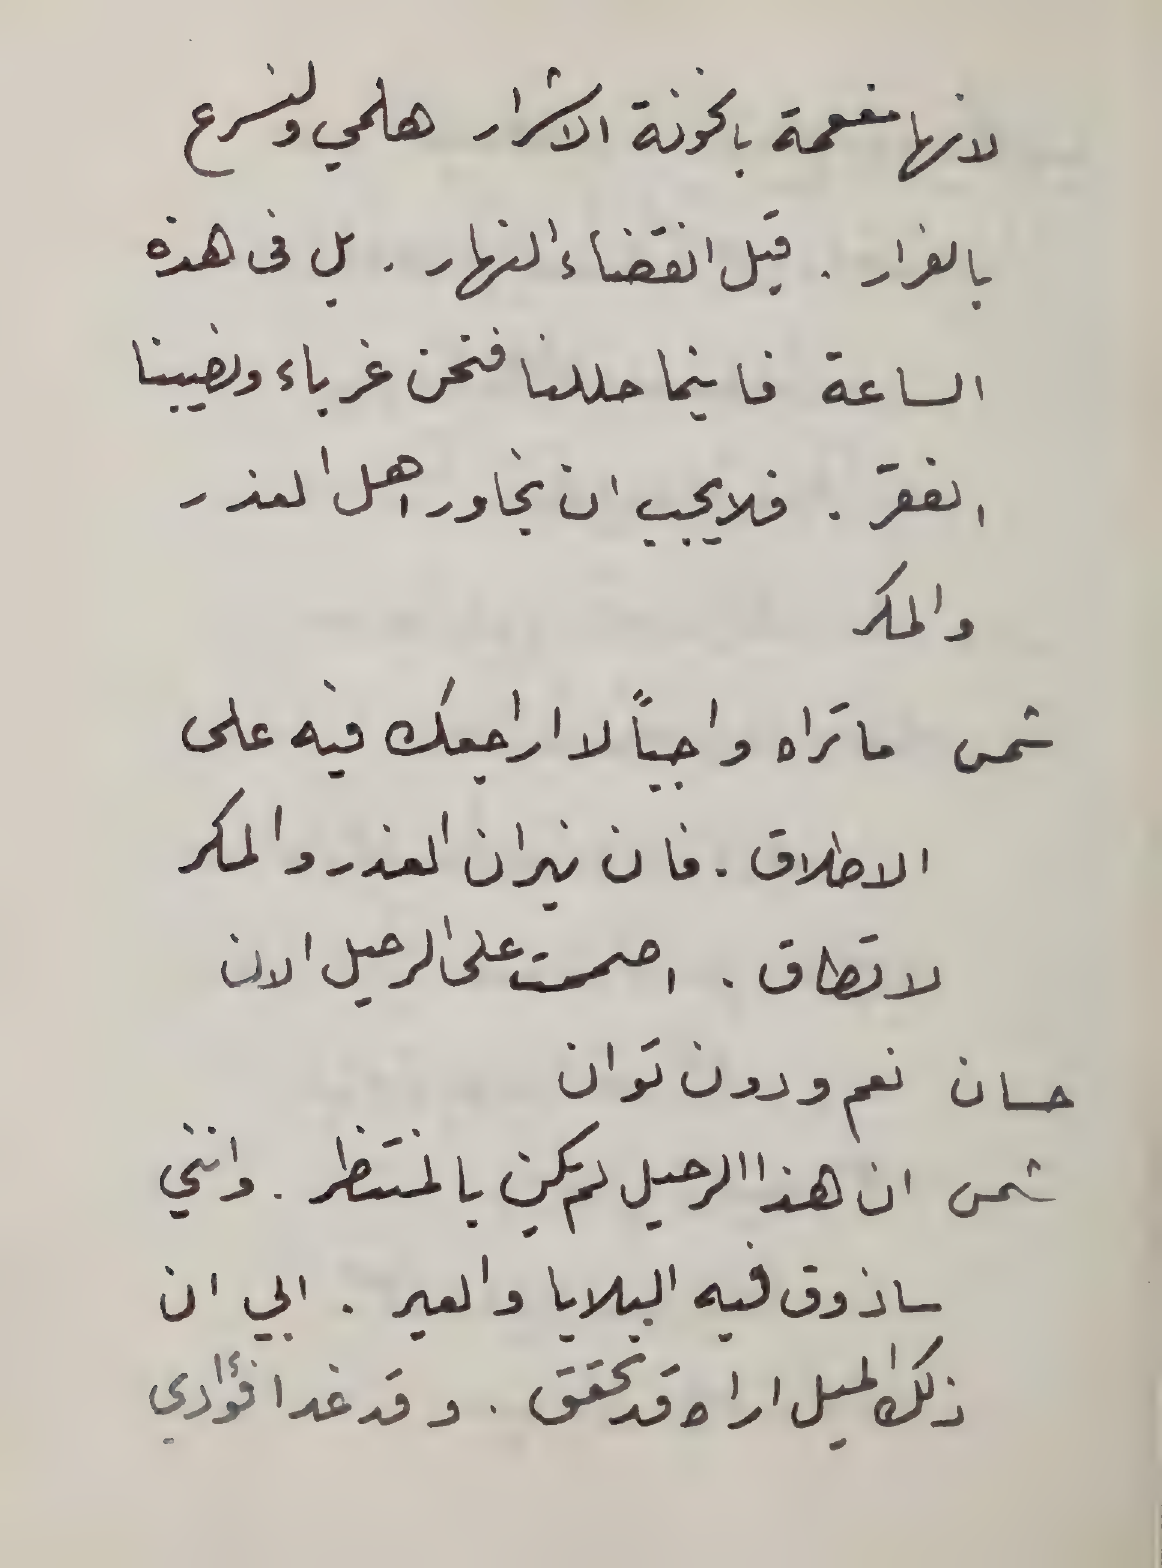 لانها مفعمة بالخونة الاشرار هلمي ولنسرع
بالفرار . قبل انقضاء النهار . بل في هذه
الساعة فاينما حللنا فنحن غرباء ونصيبنا
الفقر . فلا يجب ان نجاور اهل الغدر
والمكر
شمس ما تراه واجباً لا اراجعك فيه على
الاطلاق . فان نيران الغدر والمكر
لا تطاق . اصممت على الرحيل الان
حسان نعم ودون توان
شمس ان هذا الرحيل لم يكن بالمنتظر . وانني
ساذوق فيه البلايا والعبر . الي ان
ذلك الميل اراه قد تحقق . وقد غدا فؤادي